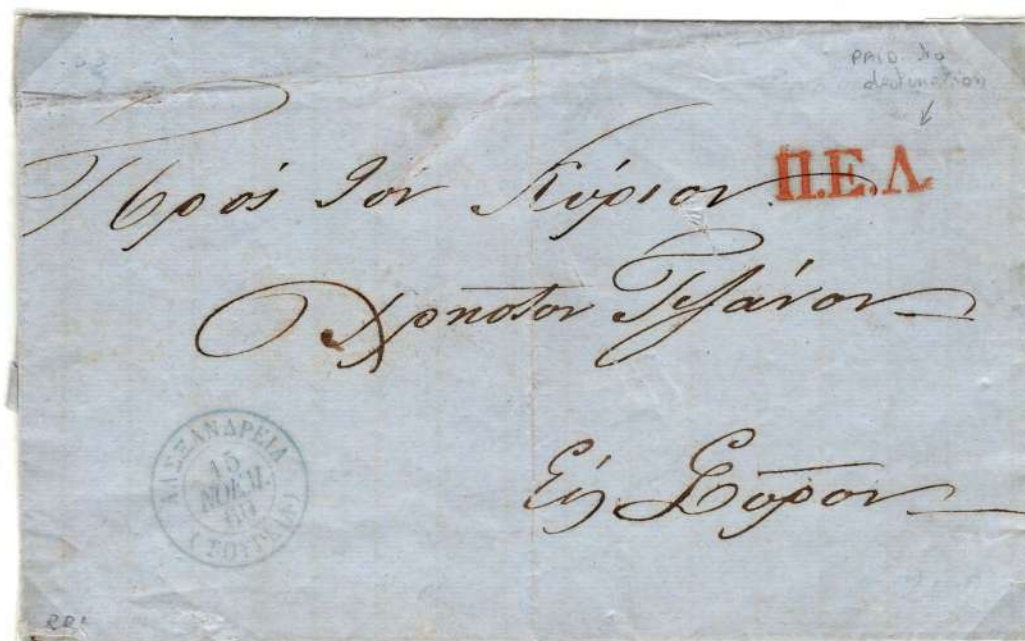 PAID to
destination
Π.Ε.Λ.
Πρὸς τὸν Κύριον
Χρῆστον Τζιάνον
Εἰς Σῦρον
ΑΛΕΞΑΝΔΡΕΙΑ
15
ΝΟΕΜ.
60
(ΤΟΥΡΚΙΑ)
RR!